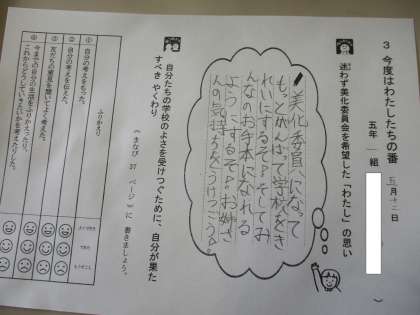 3 今度はわたしたちの番
五月十二日
五年 一組
迷わず美化委員会を希望した「わたし」の思い
美化委員になって
もっとがんばって学校をき
れいにするぞ。そしてみ
んなのお手本になれる
ようにするぞ。お姉さ
んの気持ちを
自分たちの学校のよさを受けつぐために、自分が果た
すべき やくわり
(まなび 37 ページ)に 書きましょう。
ふりかえり
① 自分の考えをもった。
② 自分の考えを伝えた。
③ 友だちの意見を聞いてよく考えた。
④ 今までの自分の生活をふりかえったり、
これからどうしていきたいかを考えたりした。